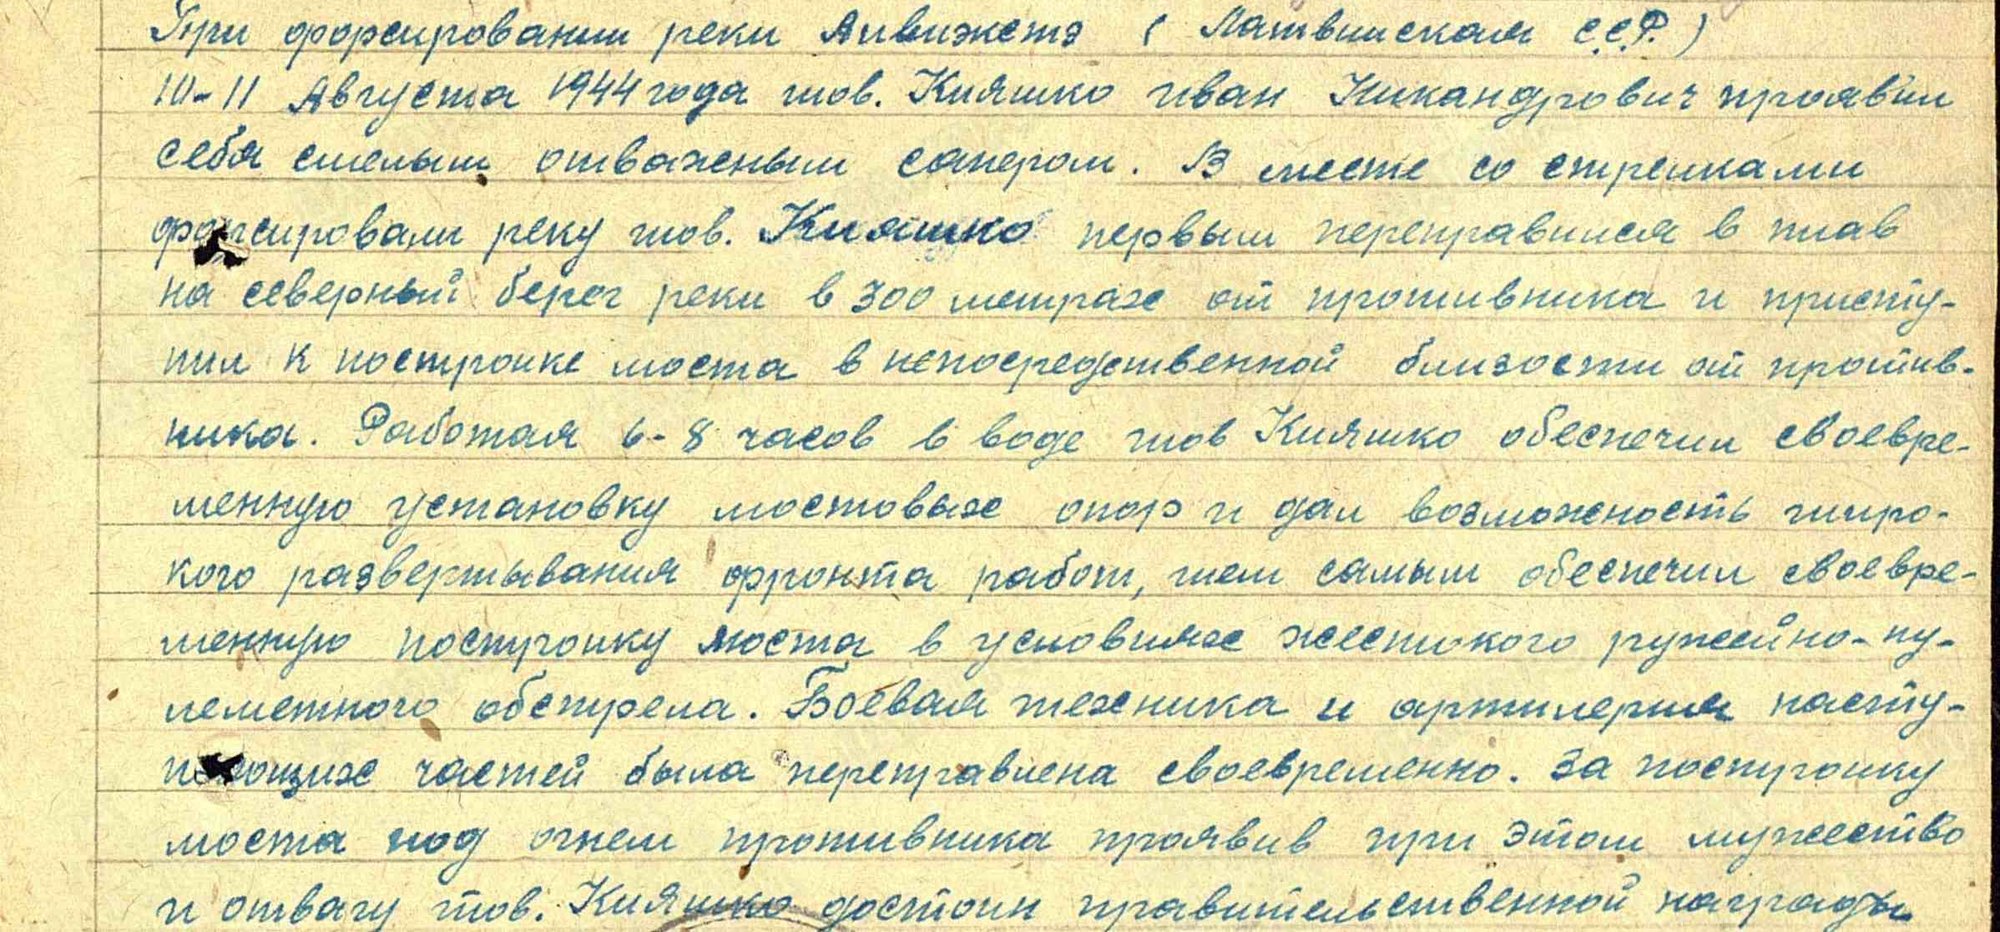 При форсировании реки Аивиэкстэ (Латвийская С.С.Р.)
10-11 Августа 1944 года тов. Кияшко Иван Никандрович проявил
себя смелым отважным сапером. В месте со стрелками
форсировали реку тов. Кияшко первым переправился в плав
на северный берег реки в 300 метрах от противника и присту-
пил к постройке моста в непосредственной близости от против-
ника. Работая 6-8 часов в воде тов Кияшко обеспечил своевре-
менную установку мостовых опор и дал возможность широ-
кого развертывания фронта работ, тем самым обеспечил своевре-
менную постройку моста в условиях жестокого ружейно-пу-
леметного обстрела. Боевая техника и артилерия насту-
пающих частей была переправлена своевременно. За постройку
моста под огнем противника проявив при этом мужество
и отвагу тов. Кияшко достоин правительственной награды